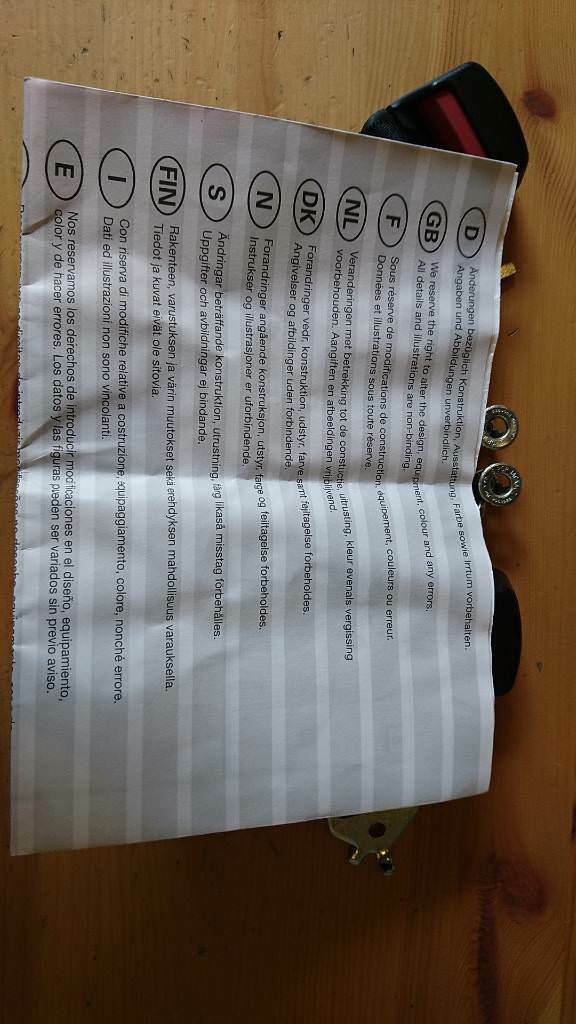 D
Änderungen bezüglich Konstruktion, Ausstattung, Farbe sowie Irrtum vorbehalten.
Angaben und Abbildungen unverbindlich.
GB
We reserve the right to alter the design, equipment, colour and any errors.
All details and illustrations are non-binding.
F
Sous réserve de modifications de construction, équipement, couleurs ou erreur.
Données et illustrations sous toute réserve.
NL
Veranderingen met betrekking tot de constuctie, uitrusting, kleur evenals vergissing
voorbehouden. Aangiften en afbeeldingen vrijblijvend.
DK
Forandringer vedr. konstruktion, udstyr, farve samt fejltagelse forbeholdes.
Angivelser og afbildinger uden forbindende.
N
Forandringer angående konstruksjon, utstyr, farge og feiltagelse forbeholdes.
Instrukser og illustrasjoner er uforbindende.
S
Ändringar beträffande konstruktion, utrustning, färg likaså misstag förbehålles.
Uppgifter och avbildningar ej bindande.
FIN
Rakenteen, varustuksen ja värin muutokset sekä erehdyksen mahdollisuus varauksella.
Tiedot ja kuvat eivät ole sitovia.
I
Con riserva di modifiche relative a costruzione, equipaggiamento, colore, nonché errore.
Dati ed illustrazioni non sono vincolanti.
E
Nos reservamos los derechos de introducir modificaciones en el diseño, equipamiento,
color y de hacer errores. Los datos y las figuras pueden ser variados sin previo aviso.